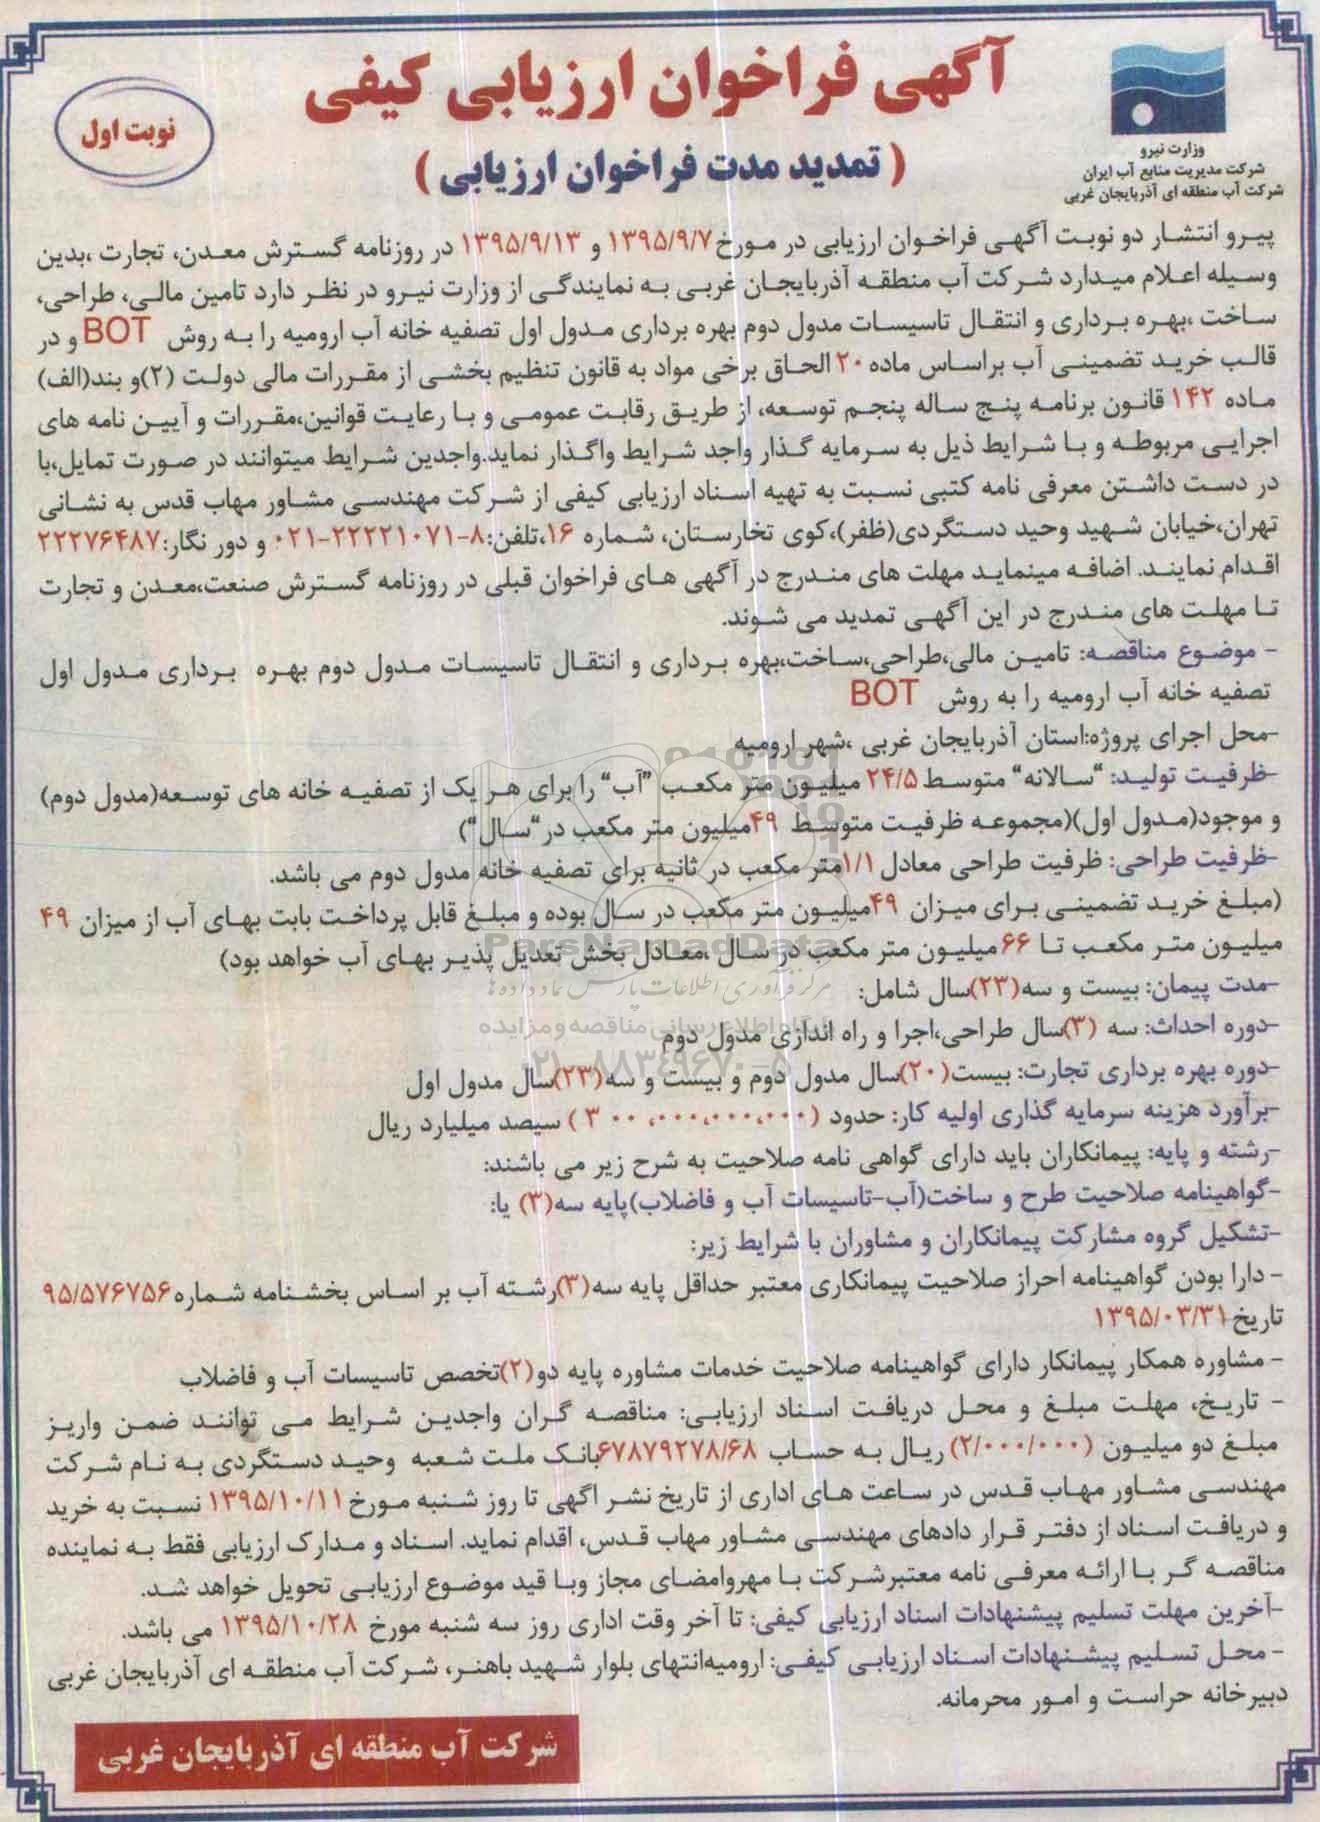 آگهی فراخوان ارزیابی کیفی
( تمدید مدت فراخوان ارزیابی )
نوبت اول
وزارت نیرو
شرکت مدیریت منابع آب ایران
شرکت آب منطقه ای آذربایجان غربی
پیرو انتشار دو نوبت آگهی فراخوان ارزیابی در مورخ ۱۳۹۵/۹/۷ و ۱۳۹۵/۹/۱۳ در روزنامه گسترش معدن، تجارت ،بدین
وسیله اعلام میدارد شرکت آب منطقه آذربایجان غربی به نمایندگی از وزارت نیرو در نظر دارد تامین مالی، طراحی،
ساخت ،بهره برداری و انتقال تاسیسات مدول دوم بهره برداری مدول اول تصفیه خانه آب ارومیه را به روش BOT و در
قالب خرید تضمینی آب براساس ماده ۲۰ الحاق برخی مواد به قانون تنظیم بخشی از مقررات مالی دولت (۲)و بند(الف)
ماده ۱۴۲ قانون برنامه پنج ساله پنجم توسعه، از طریق رقابت عمومی و با رعایت قوانین،مقررات و آیین نامه های
اجرایی مربوطه و با شرایط ذیل به سرمایه گذار واجد شرایط واگذار نماید.واجدین شرایط میتوانند در صورت تمایل،با
در دست داشتن معرفی نامه کتبی نسبت به تهیه اسناد ارزیابی کیفی از شرکت مهندسی مشاور مهاب قدس به نشانی
تهران،خیابان شهید وحید دستگردی(ظفر)،کوی تخارستان، شماره ۱۶،تلفن:۸-۲۲۲۲۱۰۷۱-۰۲۱ و دور نگار:۲۲۲۷۶۴۸۷
اقدام نمایند. اضافه مینماید مهلت های مندرج در آگهی های فراخوان قبلی در روزنامه گسترش صنعت،معدن و تجارت
تا مهلت های مندرج در این آگهی تمدید می شوند.
- موضوع مناقصه: تامین مالی،طراحی،ساخت،بهره برداری و انتقال تاسیسات مدول دوم بهره برداری مدول اول
تصفیه خانه آب ارومیه را به روش BOT
-محل اجرای پروژه:استان آذربایجان غربی ،شهر ارومیه
-ظرفیت تولید: “سالانه“ متوسط ۲۴/۵ میلیون متر مکعب ”آب“ را برای هر یک از تصفیه خانه های توسعه(مدول دوم)
و موجود(مدول اول)(مجموعه ظرفیت متوسط ۴۹میلیون متر مکعب در“سال“)
-ظرفیت طراحی: ظرفیت طراحی معادل ۱/۱متر مکعب در ثانیه برای تصفیه خانه مدول دوم می باشد.
(مبلغ خرید تضمینی برای میزان ۴۹میلیون متر مکعب در سال بوده و مبلغ قابل پرداخت بابت بهای آب از میزان ۴۹
میلیون متر مکعب تا ۶۶ میلیون متر مکعب در سال ،معادل بخش تعدیل پذیر بهای آب خواهد بود)
ParsNamadData
مرکز فرآوری اطلاعات پارس نماد داده ها
-مدت پیمان: بیست و سه(۲۳)سال شامل:
پایگاه اطلاع رسانی مناقصه و مزایده
-دوره احداث: سه (۳)سال طراحی،اجرا و راه اندازی مدول دوم
۰۲۱-۸۸۳۴۹۶۷۰-۵
-دوره بهره برداری تجارت: بیست(۲۰)سال مدول دوم و بیست و سه(۲۳)سال مدول اول
-برآورد هزینه سرمایه گذاری اولیه کار: حدود (۳۰۰،۰۰۰،۰۰۰،۰۰۰ ) سیصد میلیارد ریال
-رشته و پایه: پیمانکاران باید دارای گواهی نامه صلاحیت به شرح زیر می باشند:
-گواهینامه صلاحیت طرح و ساخت(آب-تاسیسات آب و فاضلاب)پایه سه(۳) یا:
-تشکیل گروه مشارکت پیمانکاران و مشاوران با شرایط زیر:
- دارا بودن گواهینامه احراز صلاحیت پیمانکاری معتبر حداقل پایه سه(۳)رشته آب بر اساس بخشنامه شماره ۹۵/۵۷۶۷۵۶
تاریخ ۱۳۹۵/۰۳/۳۱
- مشاوره همکار پیمانکار دارای گواهینامه صلاحیت خدمات مشاوره پایه دو(۲)تخصص تاسیسات آب و فاضلاب
- تاریخ، مهلت مبلغ و محل دریافت اسناد ارزیابی: مناقصه گران واجدین شرایط می توانند ضمن واریز
مبلغ دو میلیون (۲/۰۰۰/۰۰۰) ریال به حساب ۶۷۸۷۹۲۷۸/۶۸بانک ملت شعبه وحید دستگردی به نام شرکت
مهندسی مشاور مهاب قدس در ساعت های اداری از تاریخ نشر اگهی تا روز شنبه مورخ ۱۳۹۵/۱۰/۱۱ نسبت به خرید
و دریافت اسناد از دفتر قرار دادهای مهندسی مشاور مهاب قدس، اقدام نماید. اسناد و مدارک ارزیابی فقط به نماینده
مناقصه گر با ارائه معرفی نامه معتبرشرکت با مهروامضای مجاز وبا قید موضوع ارزیابی تحویل خواهد شد.
-آخرین مهلت تسلیم پیشنهادات اسناد ارزیابی کیفی: تا آخر وقت اداری روز سه شنبه مورخ ۱۳۹۵/۱۰/۲۸ می باشد.
- محل تسلیم پیشنهادات اسناد ارزیابی کیفی: ارومیه‌انتهای بلوار شهید باهنر، شرکت آب منطقه ای آذربایجان غربی
دبیرخانه حراست و امور محرمانه.
شرکت آب منطقه ای آذربایجان غربی